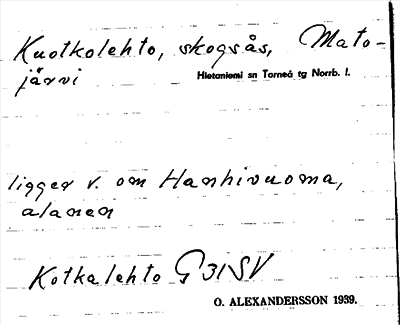 Kuotkolehto, skogsås, Mato-
järvi Hietaniemi sn Torneå tg Norrb. l.
ligger v. om Hanhivuoma,
alanen
Kotkalehto G31SV
O. ALEXANDERSSON 1939.